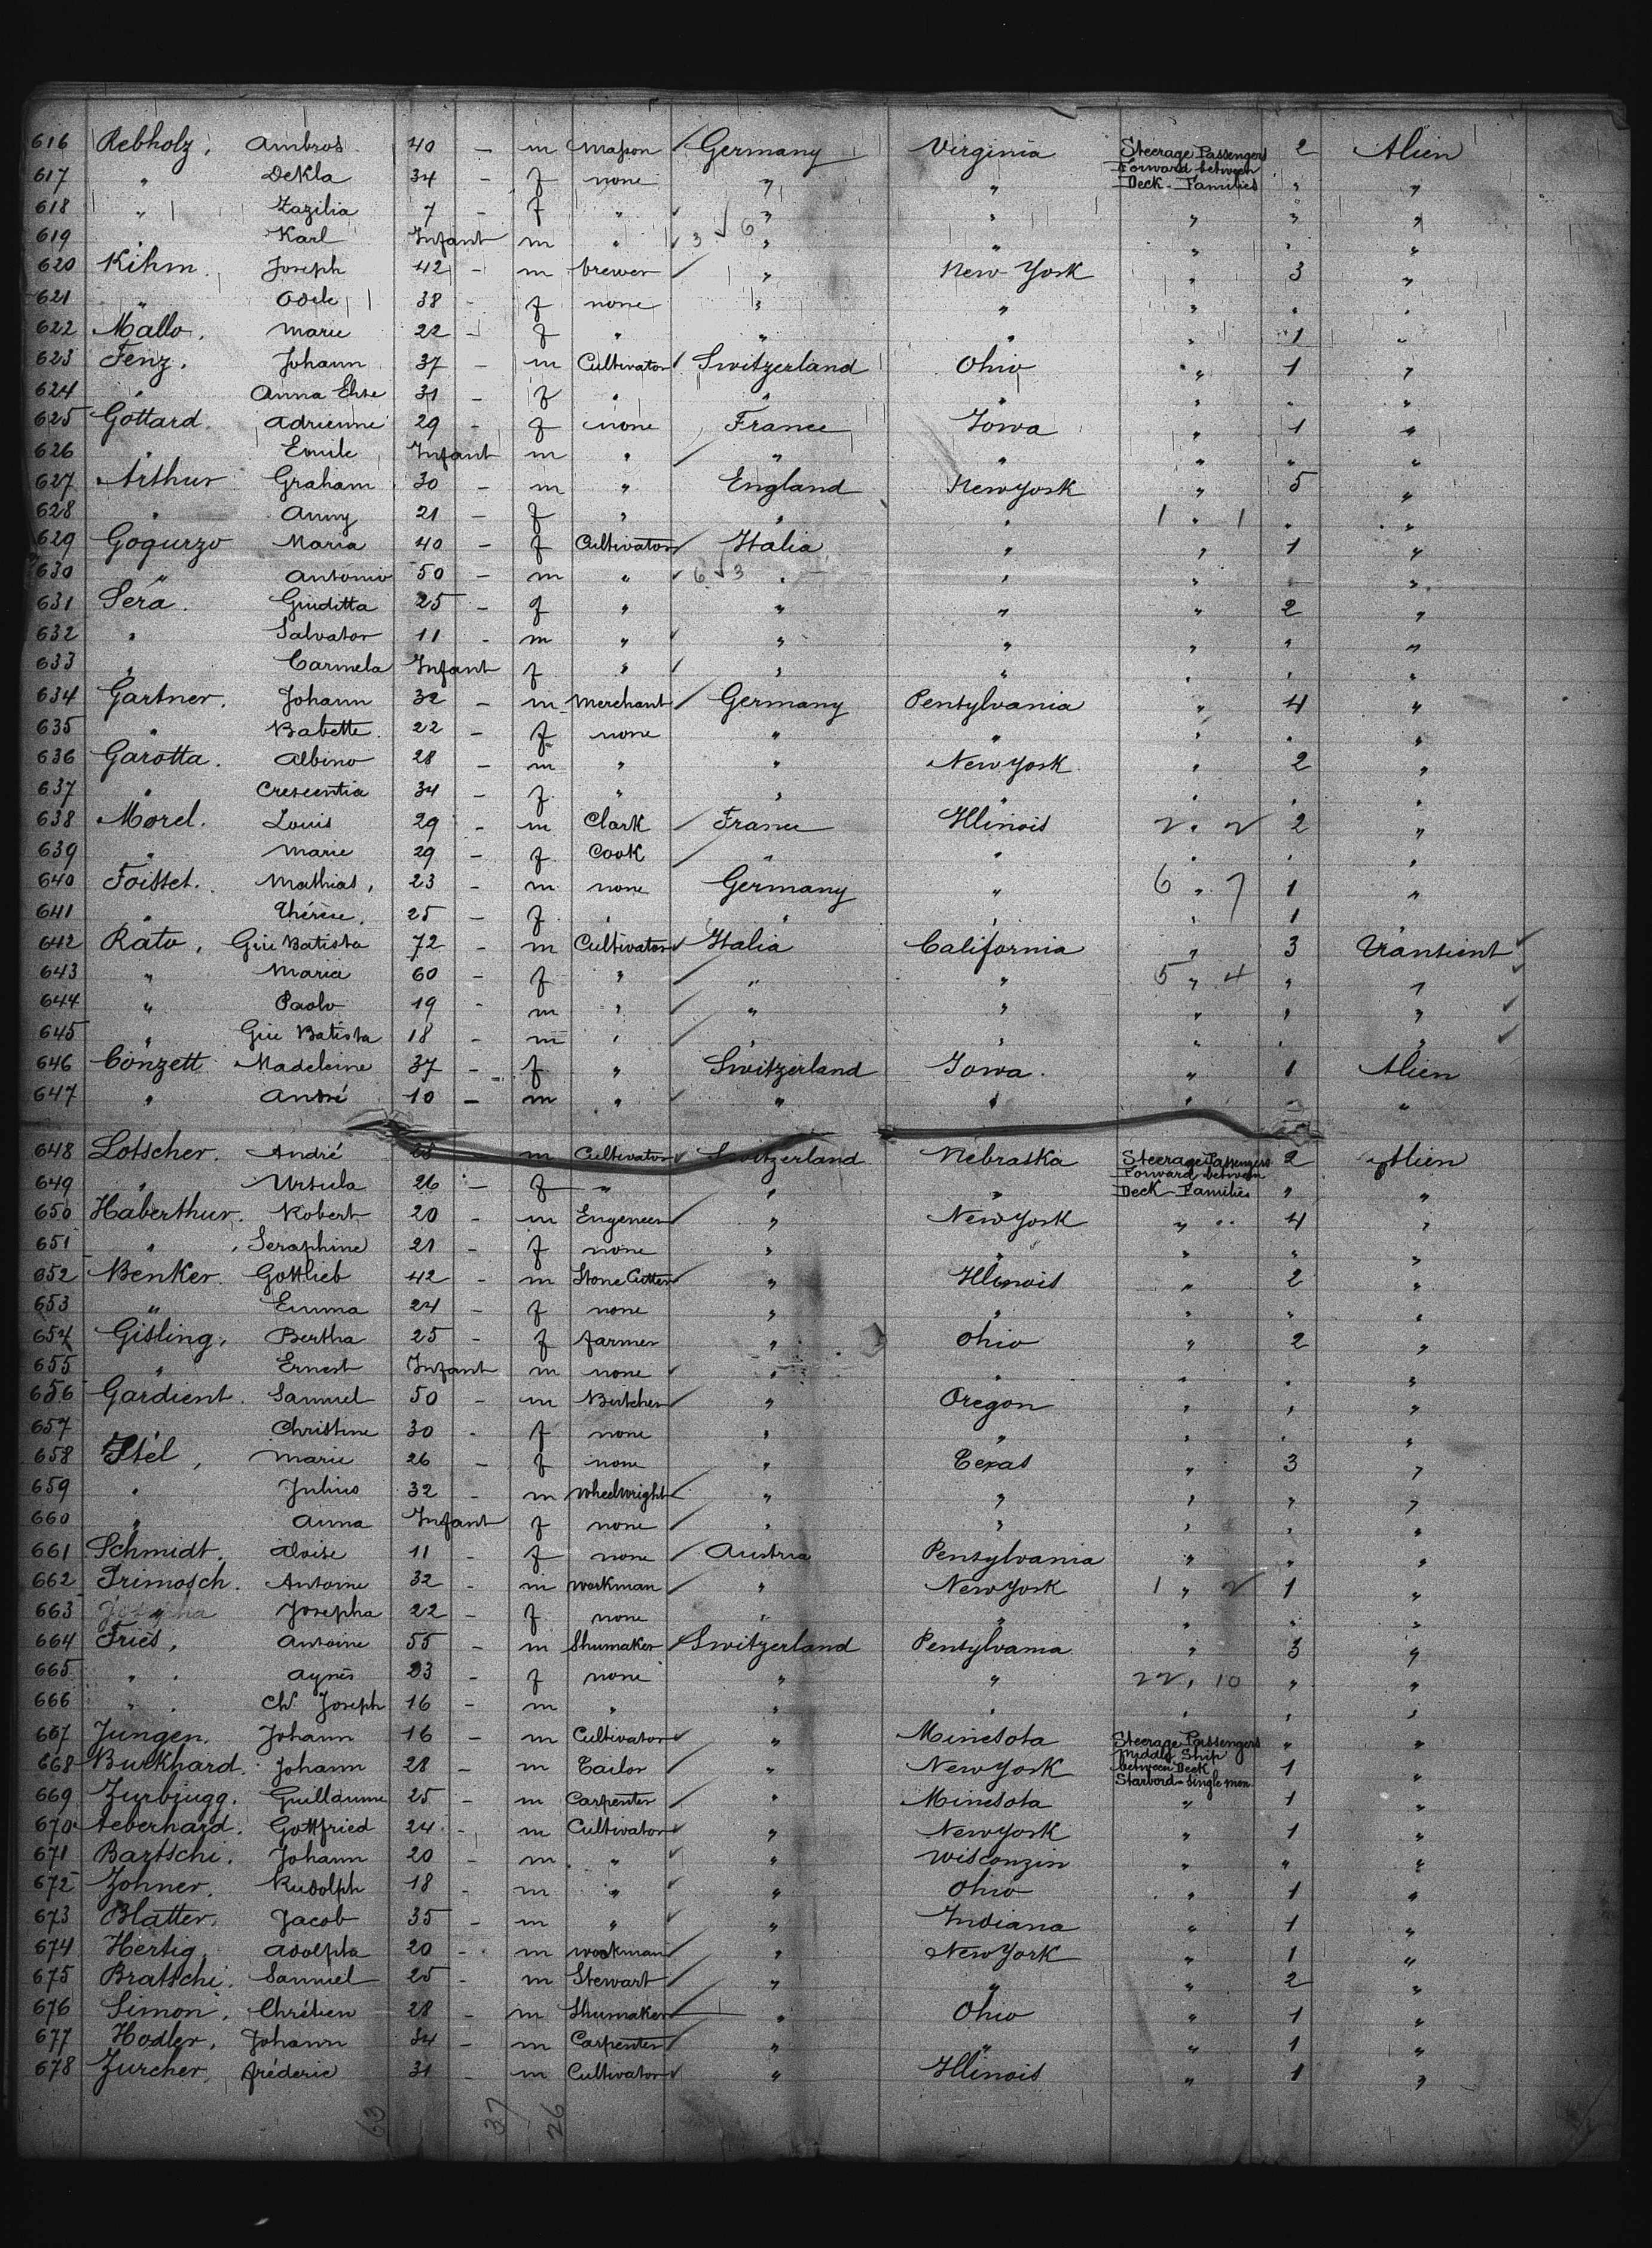 616 Rebholz, Ambros 40 - m Mason Germany Virginia Steerage Passengers Forward between Deck-Families 2 Alien
617 " Dekla 34 - f none " " " "
618 " Zazilia 7 - f " " " " " "
619 " Karl Infant m " 3 6 " " " " "
620 Kihm. Joseph 42 - m brewer " New York " 3 "
621 " Odile 38 - f none " " " " "
622 Mallo. Marie 22 - f " " " " 1 "
623 Fenz. Johann 37 - m Cultivator Switzerland Ohio " 1 "
624 " Anna Elise 31 - f " " " " " "
625 Gottard. Adrienne 29 - f none France Iowa " 1 "
626 " Emile Infant m " " " " " "
627 Arthur Graham 30 - m " England New York " 5 "
628 " Anny 21 - f " " " 1 " 1 " "
629 Gogurzo Maria 40 - f Cultivator Italia " " 1 "
630 " Antonio 50 - m " 6 3 " " " - "
631 Sera. Giuditta 25 - f " " " " 2 "
632 " Salvator 11 - m " " " " " "
633 " Carmela Infant f " " " " " "
634 Gartner. Johann 32 - m Merchant Germany Pensylvania " 4 "
635 " Babette. 22 - f none " " " " "
636 Garotta. Albino 28 - m " " New York " 2 "
637 " Crescentia 34 - f " " " " " "
638 Morel. Louis 29 - m Clark France Illinois 2 " 2 2 "
639 " Marie 29 - f Cook " " " " "
640 Foisset. Mathias, 23 - m none Germany " 6 " 7 1 "
641 " Thérèse, 25 - f " " " " 1
642 Rato, Gui Batista 72 - m Cultivator Italia California " 3 Transient
643 " Maria 60 - f " " " 5 " 4 " "
644 " Paolo 19 - m " " " " " "
645 " Gui Batista 18 - m " " " " " "
646 Conzett Madeleine 37 - f " Switzerland Iowa. " 1 Alien
647 " André 10 - m " " " " " "
648 Lotscher. André m Cultivator Switzerland Nebraska Steerage Passengers Forward between Deck-Families 2 Alien
649 " Ursula 26 - f " " " " "
650 Haberthur. Robert 20 - m Engeneer " New York " 4 "
651 " Seraphine 21 - f none " " " " "
652 Benker. Gottlieb 42 - m Stone Cutter " Illinois " 2 "
653 " Emma 24 - f none " " " " "
654 Gisling, Bertha 25 - f farmer " Ohio " 2 "
655 " Ernest Infant m none " " " " "
656 Gardient. Samuel 50 - m Butcher " Oregon " " "
657 Christine 30 - f none " " " " "
658 Itel, Marie 26 - f none " Texas " 3 "
659 " Julius 32 - m Wheelwright " " " " "
660 " Anna Infant f none " " " " "
661 Schmidt. Aloise 11 - f none Austria Pensylvania " " "
662 Primosch. Antoine 32 - m workman " New York 1 " 2 1 "
663 Josepha 22 - f none " " " " "
664 Fries, Antoine 55 - m Shumaker Switzerland Pensylvania " 3 "
665 " Agnes 23 - f none " " 22 " 10 " "
666 " Joseph 16 - m " " " " " "
667 Jungen, Johann 16 - m Cultivator " Minesota Steerage Passengers Middle Ship between Deck Starbord-Single men " "
668 Burkhard. Johann 28 - m Tailor " New York 1 "
669 Zurbrugg. Guillaume 25 - m Carpenter " Minesota " 1 "
670 Aeberhard. Gottfried 24 - m Cultivator " New York " 1 "
671 Bartschi. Johann 20 - m " " Wisconzin " " "
672 Zohner. Rudolph 18 - m " " Ohio " 1 "
673 Blatter. Jacob 35 - m " " Indiana " 1 "
674 Hertig. Adolphe 20 - m workman " New York " 1 "
675 Bratschi. Samuel 25 - m Stewart " " " 2 "
676 Simon. Chrétien 28 - m Shumaker " Ohio " 1 "
677 Hodler. Johann 34 - m Carpenter " " " 1 "
678 Zurcher, fréderic 31 - m Cultivator " Illinois " 1 "
63 37 26